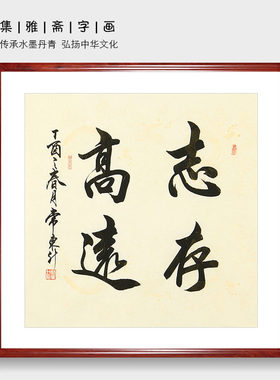 集|雅|斋|字|画
传承水墨丹青 弘扬中华文化
志存
高遠
丁酉之春月常東升